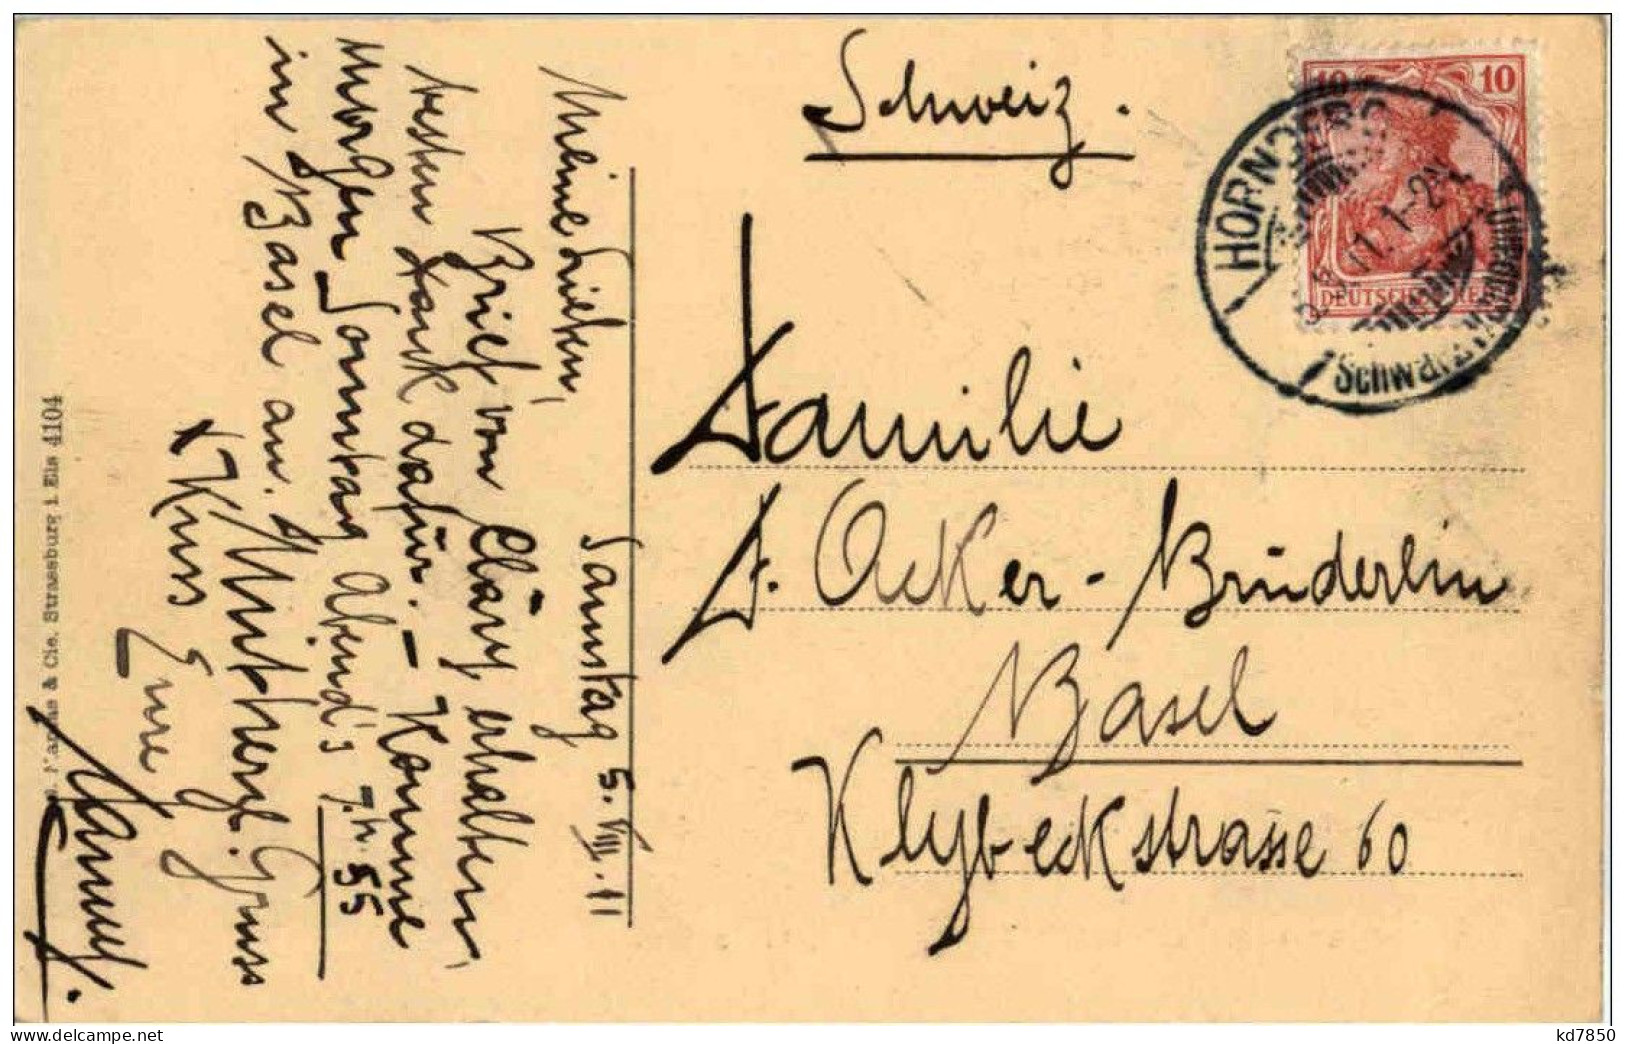 Schweiz.
10
10
HORNBERG
5.8.11.1-2N.
DEUTSCHES REICH
(Schwarzwaldbahn)
Familie
J. Acker-Brüderlin
Basel
Klybeckstrasse 60
Samstag 5.VIII.11
Meine Lieben,
Brief von Cläry erhalten,
besten Dank dafür. – Komme
Morgen Sonntag Abend's 7.h.55
in Basel an.
Gruss
+ Kuss
Eure
& Cie. Strassburg i. Els 4104
kd7850